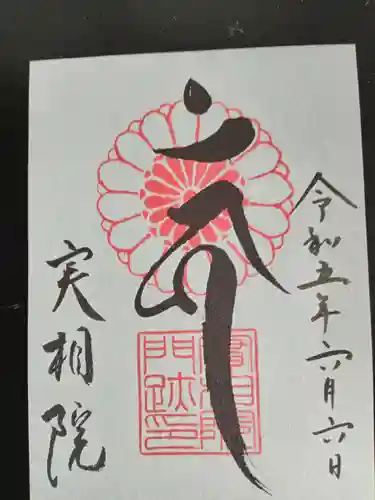 令和五年六月六日
実相院
實相院
門跡印